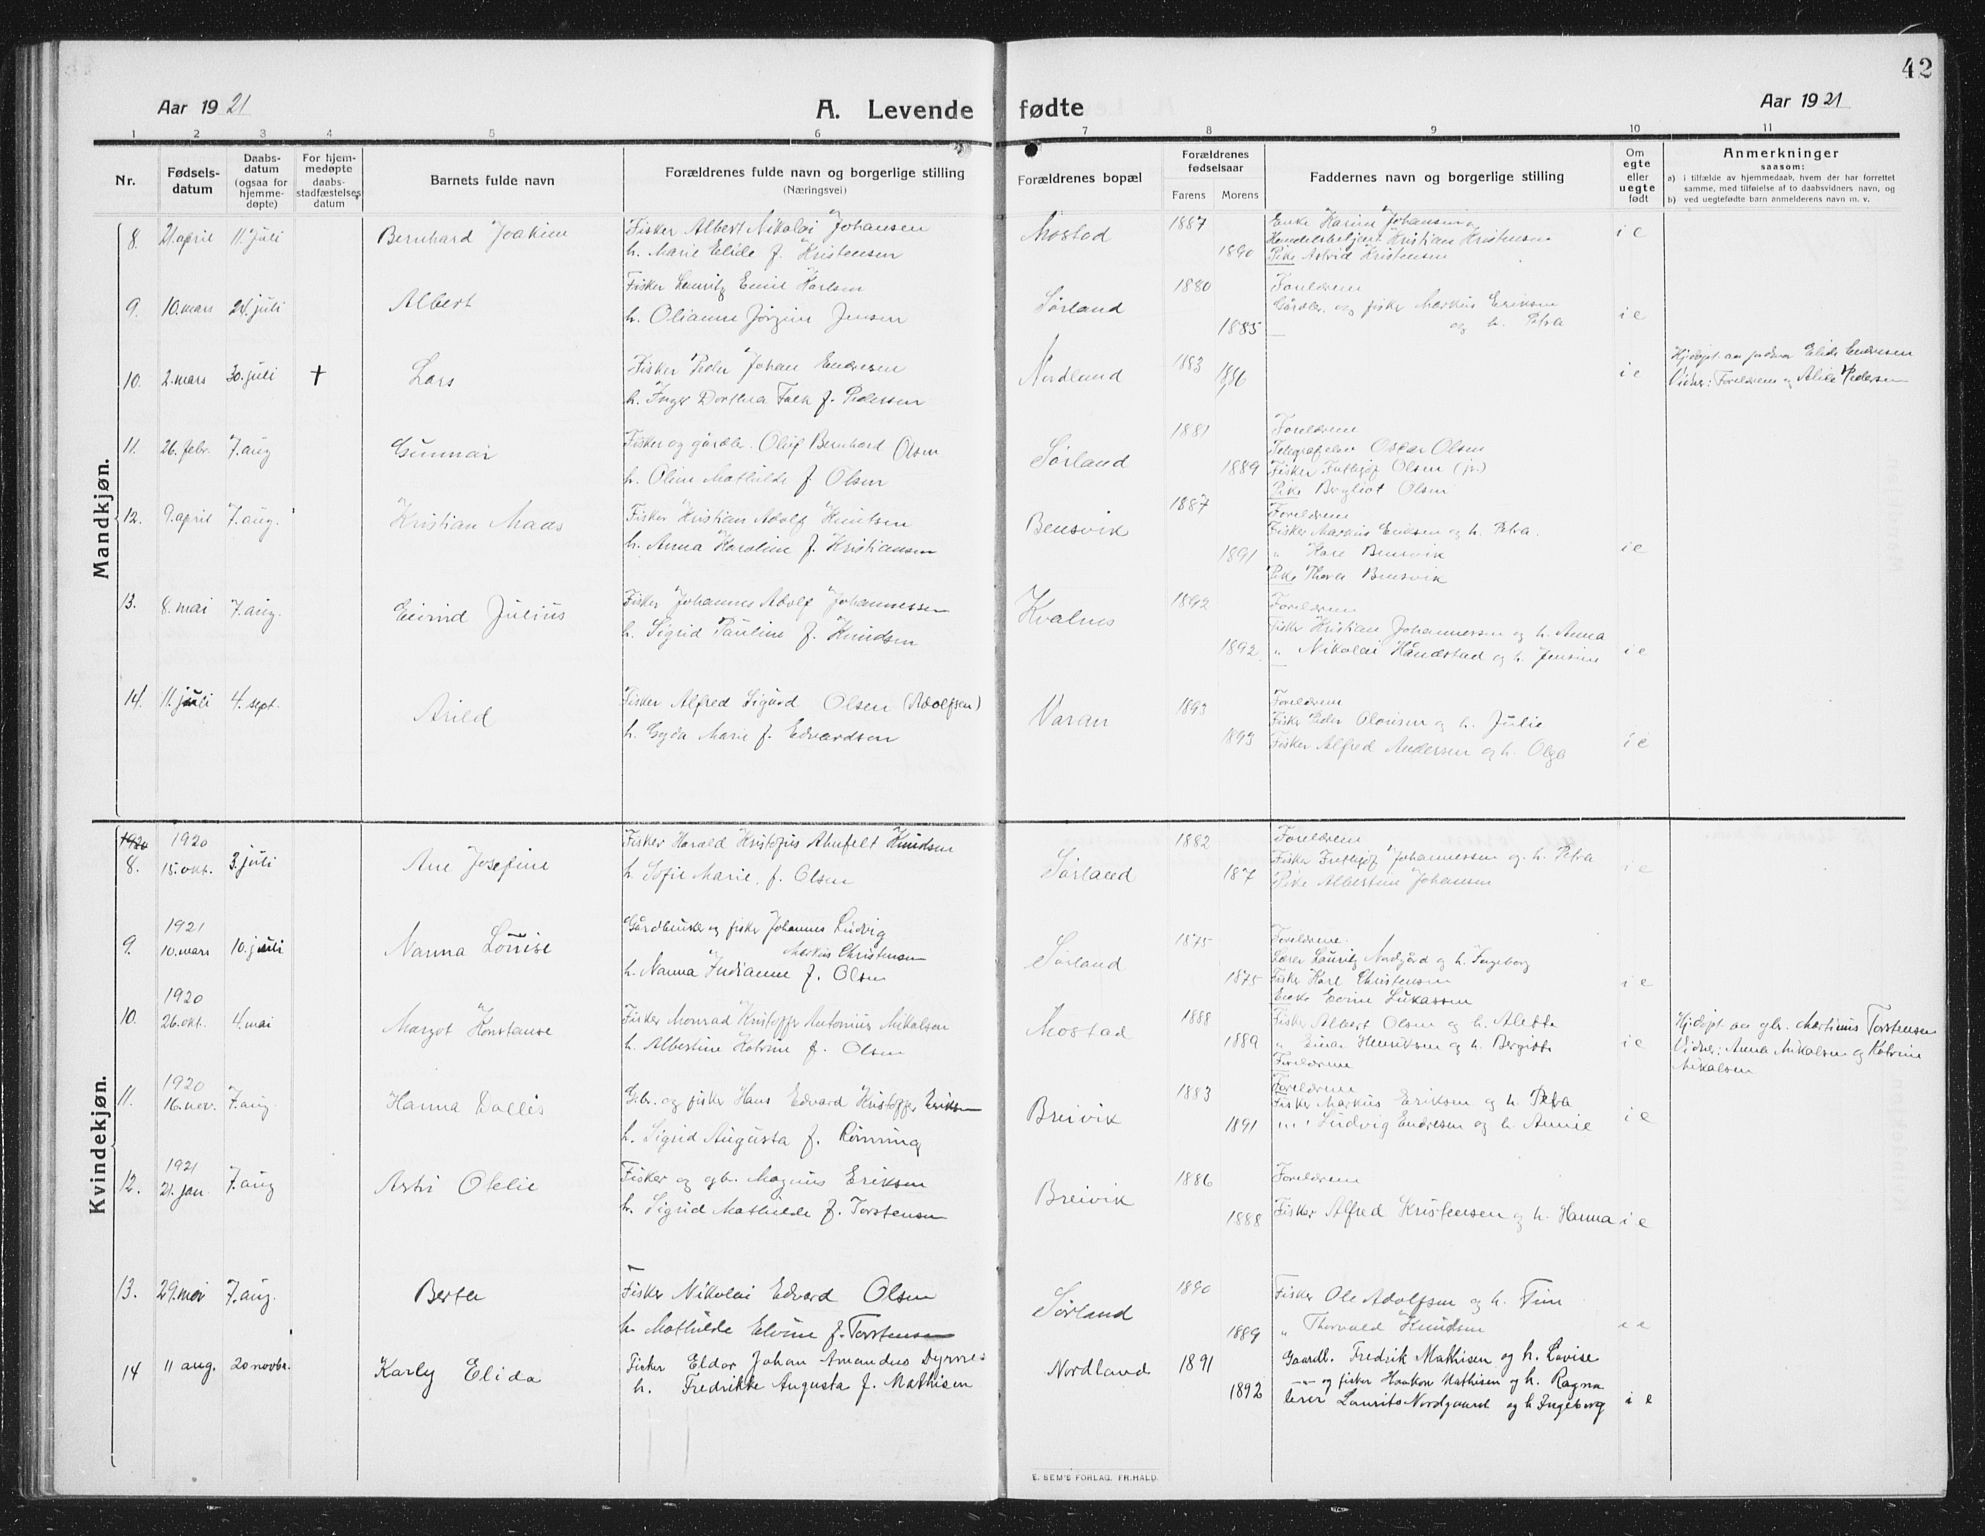 42
Aar 1921
A. Levende fødte
Aar 1921
1 2 3 4 5 6 7 8 9 10 11
Nr.
Fødsels-
datum
Daabs-
datum
(ogsaa for
hjemme-
døpte)
For hjem-
medøpte
daabs-
stadfæstelses
datum
Barnets fulde navn
Forældrenes fulde navn og borgerlige stilling
(Næringsvei)
Forældrenes bopæl
Forældrenes
fødselsaar
Farens Morens
Faddernes navn og borgerlige stilling
Om
egte
eller
uegte
født
Anmerkninger
saasom:
a) i tilfælde av hjemmedaab, hvem der har forrettet
samme, med tilføielse af to daabsvidners navn, og
b) ved uegtefødte barn anmelderens navn m. v.
Mandkjøn.
8. 21. april 11. juli Bernhard Joakim
Fisker Albert Nikolai Johansen
h. Marie Elide f. Kristensen
Mostad 1887 1890
Enke Karin Johansen
Handelsbetjent Kristian Kristensen
Pike Astrid Kristensen
i e
9. 10. mars 24. juli Albert
Fisker Lauritz Emil Karlsen
h. Olianna Jørgine Jensen
Sørland 1880 1885
Foreldrene
Gårdbr. og fisker Markus Eriksen
og h. Petra
i e
10. 2. mars 30. juli + Lars
Fisker Peder Johan Endresen
h. Inger Dorthea Falk f. Pedersen
Nordland 1883 1886
i e
Hjdøpt av jordmor Elide Endresen
Vidner: Foreldrene og Alida Pedersen
11. 26. febr. 7. aug Gunnar
Fisker og gårdbr. Oluf Bernhard Olsen
h. Oline Mathilde f. Olsen
Sørland 1881 1889
Foreldrene
Telegrafelev Oscar Olsen
Fisker Fritjof Olsen (jr.)
Pike Bergliot Olsen
12. 9. april 7. aug. Kristian Maas
Fisker Kristian Adolf Knutsen
h. Anna Karoline f. Kristiansen
Bensvik 1887 1891
Foreldrene
Fisker Markus Eriksen og h. Petra.
" Kare Bensvik
Pike Thora Bensvik
i e
13. 8. mai 7. aug. Eivind Julius
Fisker Johannes Adolf Johannessen
h. Sigrid Pauline f. Knudsen
Kvalnes 1892 1892
Foreldrene
Fisker Kristian Johannessen og h. Anna
" Nikolai Håndstad og h. Jensine
i e
14. 11. juli 4. sept. Arild
Fisker Alfred Sigurd Olsen (Adolfsen)
h. Gyda Marie f. Edvardsen
Varan 1893 1893
Foreldrene
Fisker Peder Olausen og h. Julie
Fisker Alfred Andersen og h. Olga
i e
Kvindekjøn.
1920 1920
8. 15. okt. 3. juli Ane Josefine
Fisker Harald Kristofus Ahnfelt Knudsen
h. Sofie Marie f. Olsen
Sørland 1882 187
Foreldrene
Fisker Fritjof Johannessen og h. Petra
Pike Albertine Johansen
i e
1921
9. 10. mars 10. juli Nanna Louise
Gårdbruker og fisker Johannes Ludvig
Markus Christensen
h. Nanna Indianne f. Olsen
Sørland 1875 1875
Foreldrene.
Lærer Lauritz Nordgård og h. Ingeborg
Fisker Karl Christensen
Enke Evine Lukassen
i e
1920
10. 26. okt. 4. mai Margot Konstanse
Fisker Monrad Kristoffer Antonius Mikalsen
h. Albertine Katrine f. Olsen
Mostad 1888 1889
Fisker Albert Olsen og h. Aletta
" Einar Henriksen og h. Bergitte
Foreldrene
i e
Hjdøpt av gbr. Martinus Torstensen
Vidner: Anna Mikalsen og Katrine
Mikalsen
1920
11. 16. nov. 7. aug. Hanna Dallis
Gbr. og fisker Hans Edvard Kristoffer Eriksen
h. Sigrid Augusta f. Rønning
Breivik 1883 1891
Foreldrene
Fisker Markus Eriksen og h. Petra
" Ludvig Endresen og h. Annie
i e
1921
12. 21. jan. 7. aug Astri Otelie
Fisker og gbr. Magnus Eriksen
h. Sigrid Mathilde f. Torstensen
Breivik 1886 1888
Foreldrene
Fisker Alfred Kristensen og h. Hanna
i e
13. 29. mai 7. aug. Berta
Fisker Nikolai Edvard Olsen
h. Mathilde Elvine f. Torstensen
Sørland 1890 1889
Fisker Ole Adolfsen og h. Fina
" Thorvald Knudsen
i e
14 11 aug. 20 novbr. Karly Elida
Fisker Eldor Johan Amandus Dyrnes
h. Fredrikke Augusta f. Mathisen
Nordland 1891 1892
Gaardb. Fredrik Mathisen og h. Lovise
-"- og fisker Haakon Mathisen og h. Ragna
lærer Laurits Nordgaard og h Ingeborg
i e
E. SEM'S FORLAG. FR.HALD.